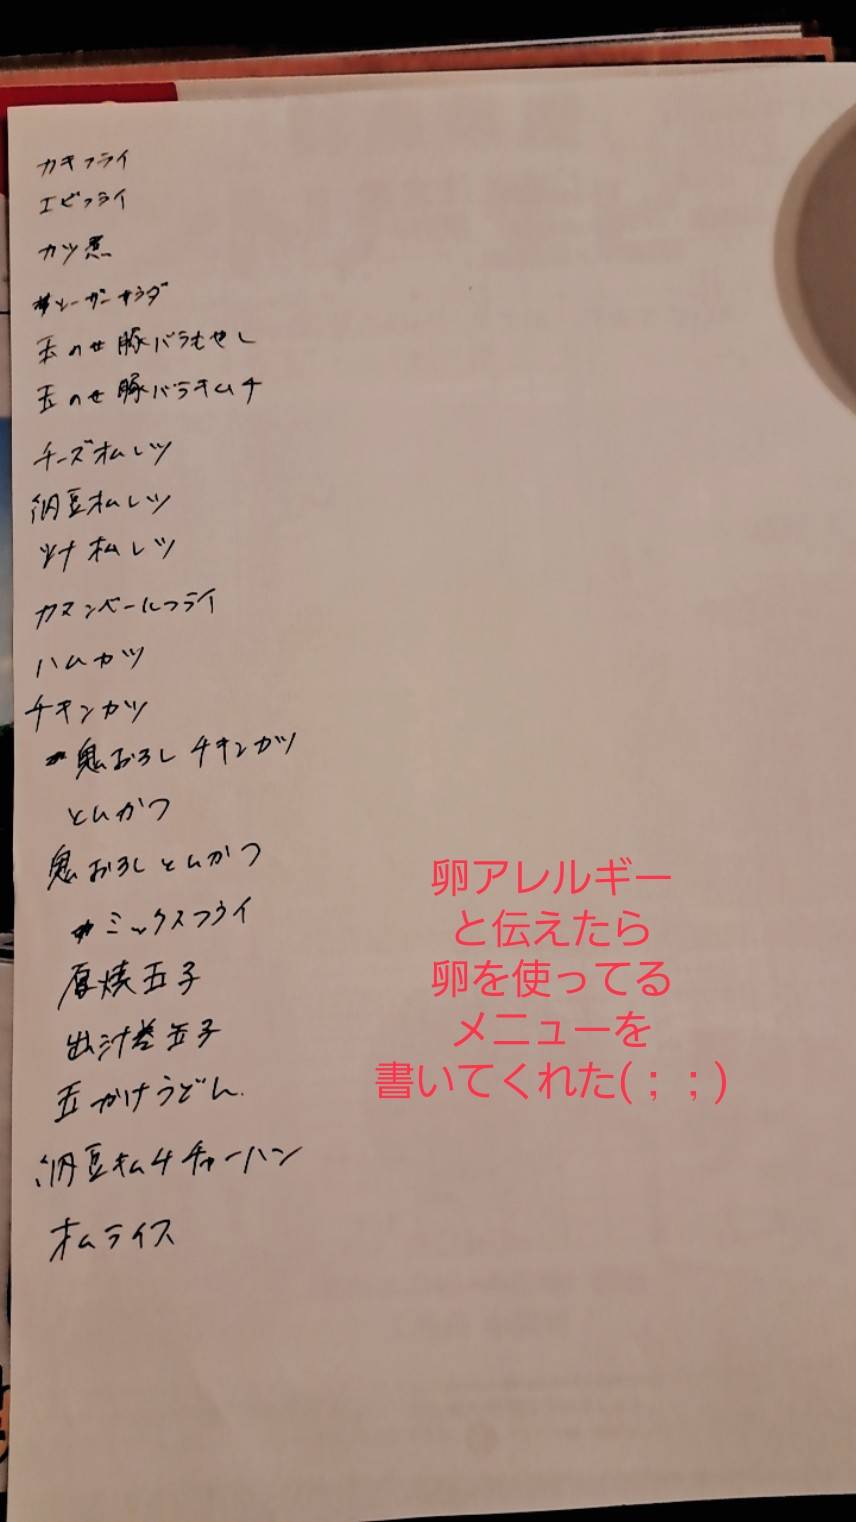 カキフライ
エビフライ
カツ煮
シーザーサラダ
玉のせ豚バラもやし
玉のせ豚バラキムチ
チーズオムレツ
納豆オムレツ
ツナオムレツ
カマンベールフライ
ハムカツ
チキンカツ
鬼おろしチキンカツ
とんかつ
鬼おろしとんかつ
ミックスフライ
厚焼玉子
出汁巻玉子
玉かけうどん
納豆キムチチャーハン
オムライス
卵アレルギー
と伝えたら
卵を使ってる
メニューを
書いてくれた(；；)